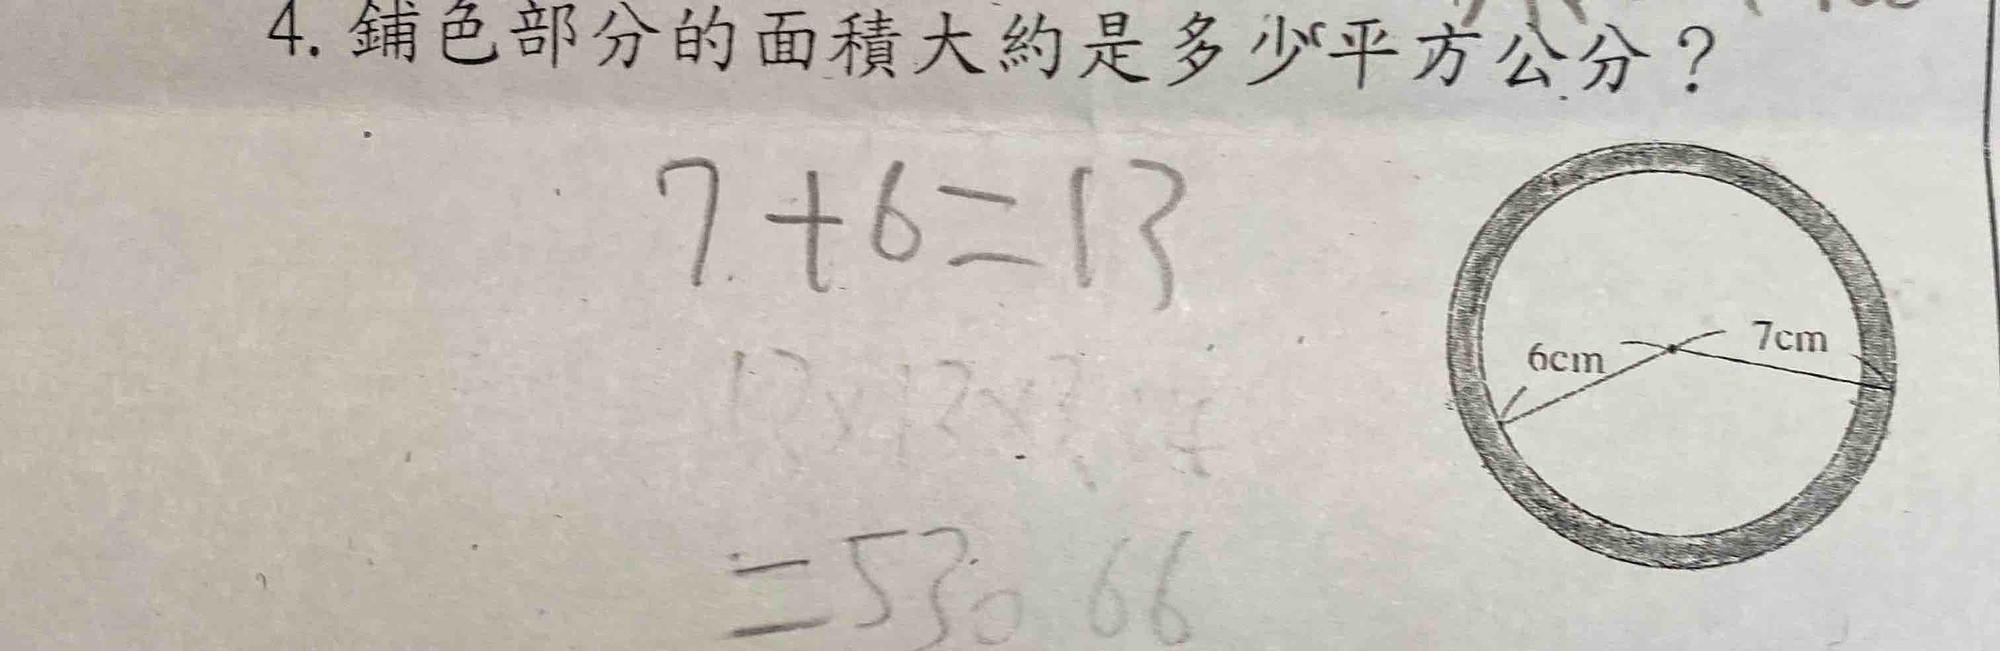 4. 鋪色部分的面積大約是多少平方公分？
7+6=13
6cm
7cm
13×13×3.14
=530.66